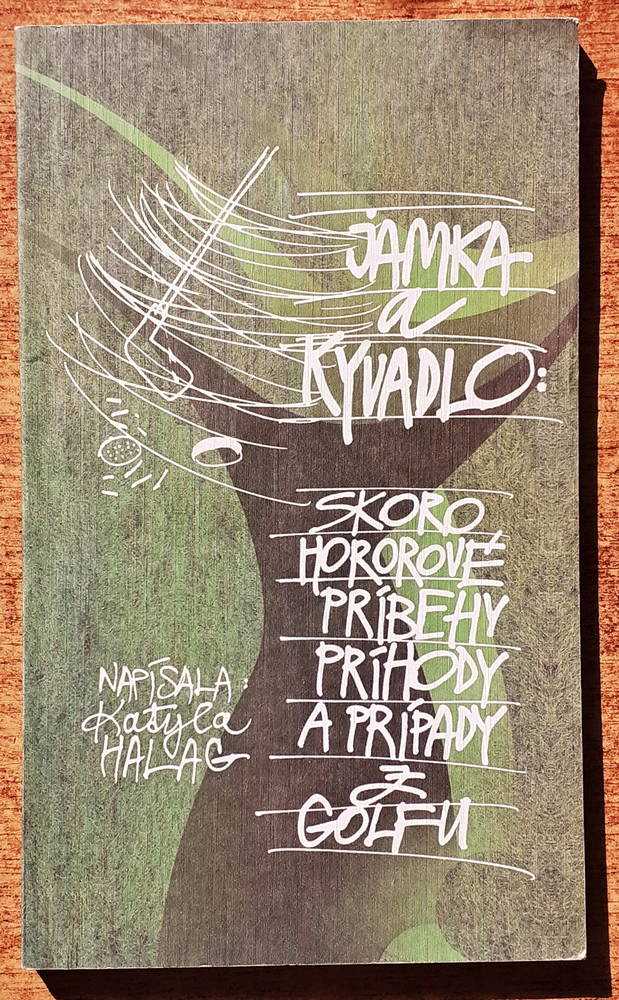 JAMKA
a
KYVADLO:
SKORO
HOROROVÉ
PRÍBEHY
PRÍHODY
A PRÍPADY
Z
GOLFU
NAPÍSALA:
Katyla
HALAG